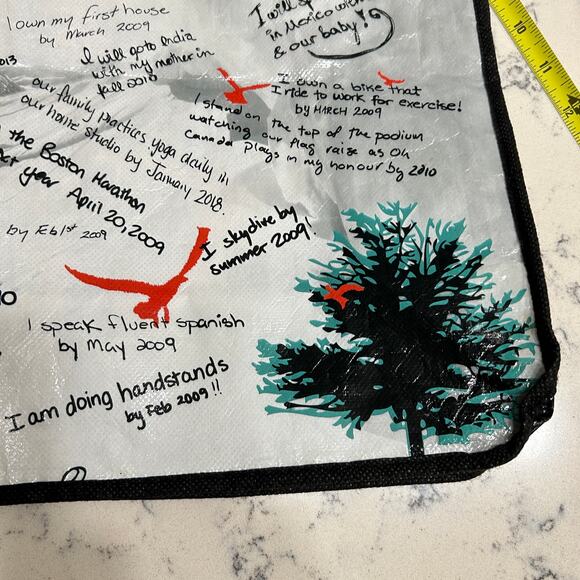 I own my first house
by March 2009
I will
in Mexico with
& our baby!
2013
I will go to India
with my mother in
fall 2010
I own a bike that
I ride to work for exercise!
by MARCH 2009
I stand on the top of the podium
watching our flag raise as Oh
Canada plays in my honour by 2010
our family practices yoga daily in
our home studio by January 2018.
the Boston Marathon
year April 20, 2009
by Feb 1st 2009
I skydive by
summer 2009!
I speak fluent spanish
by May 2009
I am doing handstands
by Feb 2009!!
10
11
12